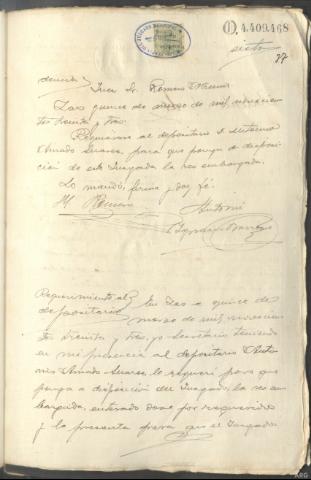 O,4.409.468
sista
77
Juez Sr. Romero
Las quince de marzo de mil novecien
tos treinta y tres.
Requierase al depositario D. Antonio
Amado Suarez, para que ponga a disposi
ción de este Juzgado la res embargada.
Lo mandó, firma y doy fé.
M. Romero
Antoni
Requerimiento al
depositario
En Las a quince de
marzo de mil novecien
tos treinta y tres, yo Secretario teniendo
en mi presencia al depositario Anto
nio Amado Suarez, le requeri para que
ponga a disposición del Juzgado, la res em
bargada, enterado dase por requerido
y la presenta para que el Juzgado
ARG